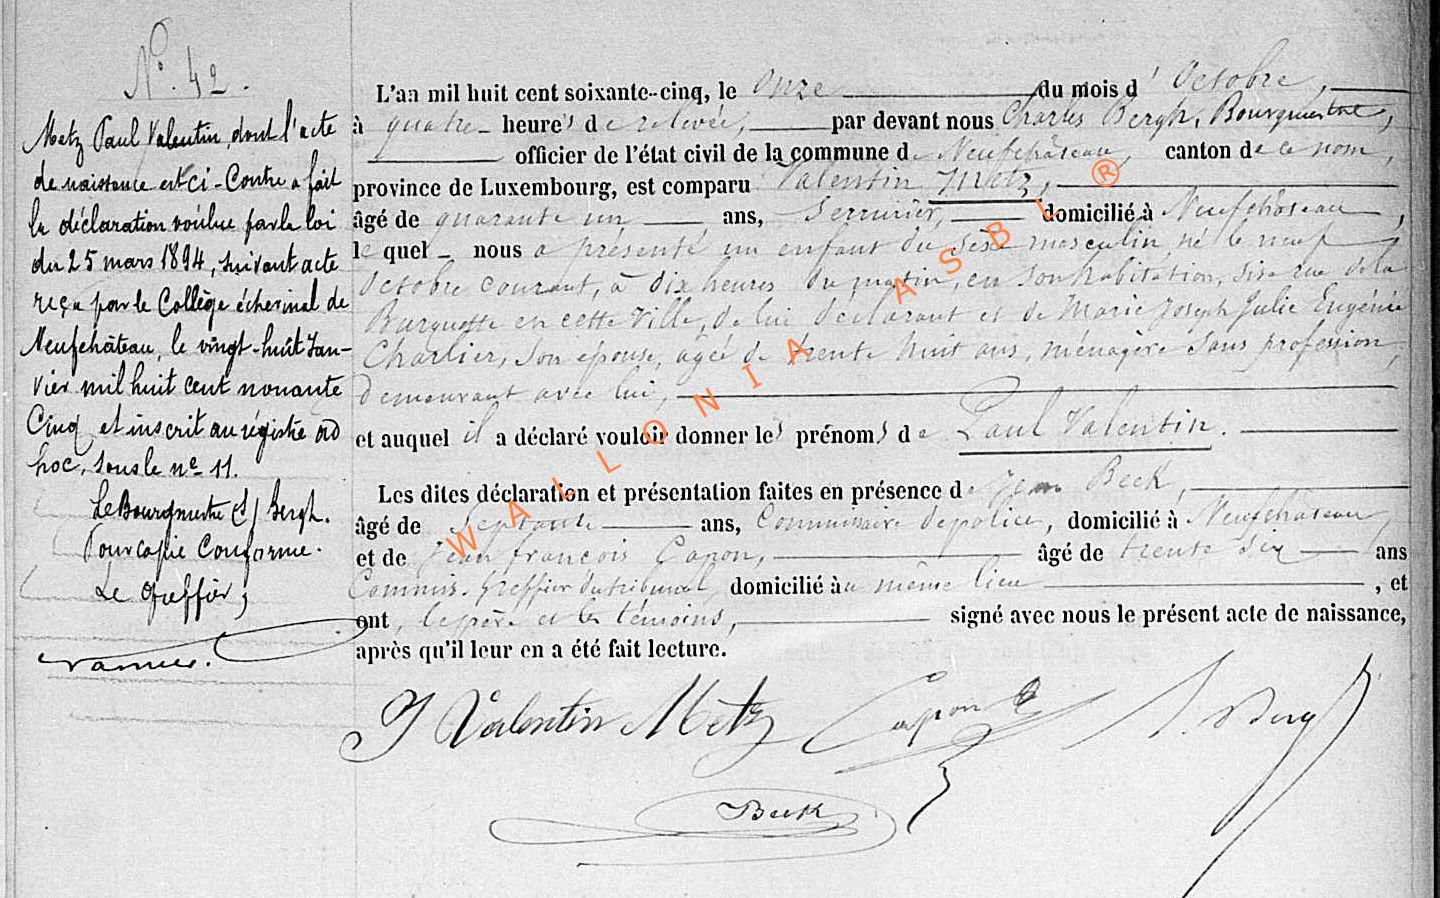 N° 42.
Metz Paul Valentin, dont l'acte
de naissance est ci-contre a fait
la déclaration voulue par la loi
du 25 mars 1894, suivant acte
reçu par le Collège échevinal de
Neufchâteau, le vingt-huit Jan-
vier mil huit cent nonante
Cinq et inscrit au régistre ad
hoc, sous le n° 11.
Le Bourgmestre (S) Bergh.
Pour copie Conforme.
Le Greffier,
L'an mil huit cent soixante-cinq, le onze du mois d'Octobre,
à quatre heures de relevée, par devant nous Charles Bergh, Bourgmestre,
officier de l'état civil de la commune de Neufchâteau, canton de ce nom,
province de Luxembourg, est comparu Valentin Metz,
âgé de quarante un ans, Serrurier, domicilié à Neufchâteau,
le quel nous a présenté un enfant du sexe masculin né le neuf
Octobre courant, à dix heures du matin, en son habitation, sise rue de la
Burquette en cette ville, de lui déclarant et de Marie Joseph Julie Eugénie
Charlier, son épouse, agée de trente huit ans, ménagère sans profession,
demeurant avec lui,
et auquel il a déclaré vouloir donner les prénoms de Paul Valentin.
Les dites déclaration et présentation faites en présence de Jean Beck,
âgé de Septante ans, Commissaire de police, domicilié à Neufchâteau
et de Jean François Capon, âgé de trente six ans
Commis. Greffier du tribunal, domicilié au même lieu, et
ont, le père et les témoins, signé avec nous le présent acte de naissance,
après qu'il leur en a été fait lecture.
J Valentin Metz Capon Bergh
Beck
WALLONIA ASBL ®